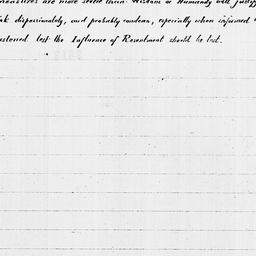 measures are more severe than Wisdom or Humanity will justify
dispassionately, and probably condemn, especially when informed
lest the Influence of Resentment should be lost.